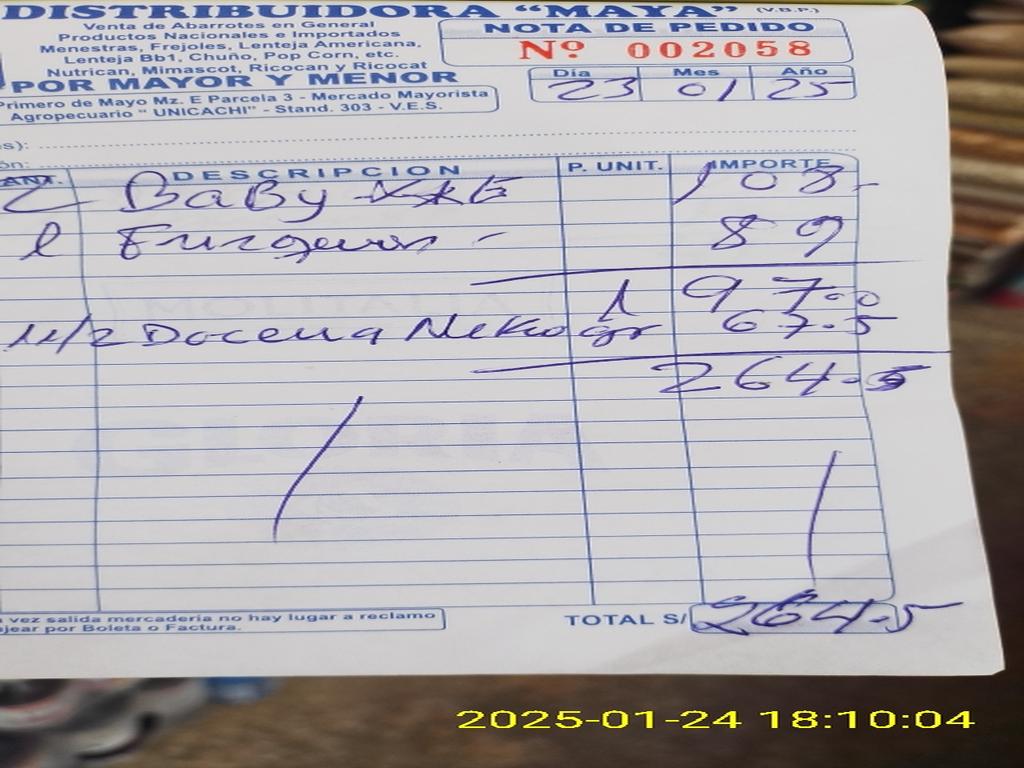 DISTRIBUIDORA "MAYA" (V.B.P.)
Venta de Abarrotes en General
Productos Nacionales e Importados
Menestras, Frejoles, Lenteja Americana,
Lenteja Bb1, Chuño, Pop Corn, etc.
Nutrican, Mimascot, Ricocan y Ricocat
POR MAYOR Y MENOR
Primero de Mayo Mz. E Parcela 3 - Mercado Mayorista
Agropecuario " UNICACHI" - Stand. 303 - V.E.S.
NOTA DE PEDIDO
Nº 002058
Dia Mes Año
23 01 25
es):
ón:
ANT. DESCRIPCION P. UNIT. IMPORTE
2 BaBy 108.-
89
197.00
Docena 67.5
264.5
a vez salida mercaderia no hay lugar a reclamo
jear por Boleta o Factura.
TOTAL S/ 264.5
2025-01-24 18:10:04